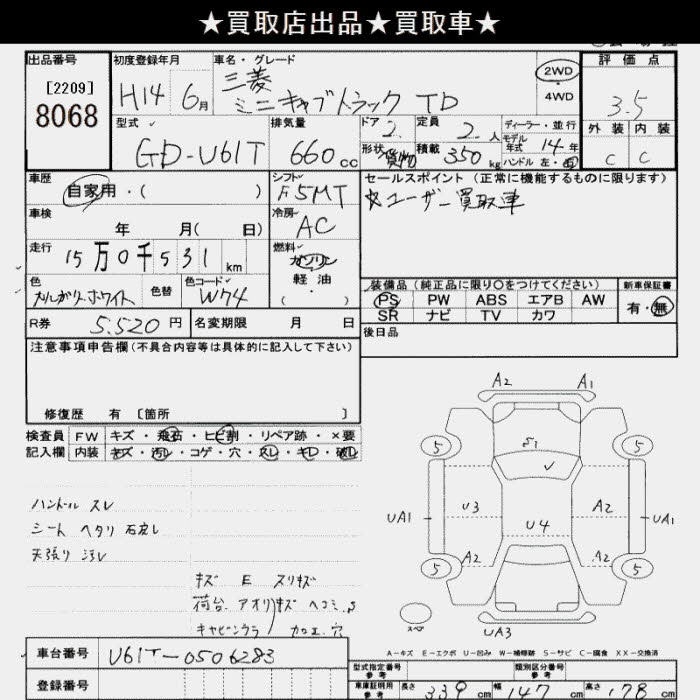 ★買取店出品★買取車★
出品番号
[2209]
8068
初度登録年月
H14 6月
車名・グレード
三菱
ミニキャブトラック TD
2WD
・
4WD
評価点
3.5
外装 内装
C C
型式
GD-U61T
排気量
660cc
ドア 2.
定員 2.人
ディーラー・並行
モデル年式 14年
形状 貨物
積載 350kg
ハンドル 左・右
車歴
自家用・( )
シフト
F5MT
セールスポイント (正常に機能するものに限ります)
☆ユーザー買取車
車検
年 月( 日)
冷房
AC
走行
15万0千531km
燃料
ガソリン
軽油
( )
色
カルガリーホワイト
色替
色コード
W74
装備品 (純正品に限り○をつけてください)
PS PW ABS エアB AW
SR ナビ TV カワ
新車保証書
有・無
R券 5.520円
名変期限 月 日
後日品
注意事項申告欄(不具合内容等は具体的に記入して下さい)
修復歴 有 〔箇所 〕
検査員 FW キズ・飛石・ヒビ割・リペア跡・×要
記入欄 内装 キズ・汚レ・コゲ・穴・スレ・キレ・破レ
ハンドル スレ
シート ヘタリ 破レ
天張り 汚レ
キズ E スリキズ
荷台.アオリ キズ ヘコミ.S
キャビンウラ カロエ.穴
A2 A1
5 S1 5
UA1 U3 A2 UA1
U4
A2 A2
5 5
スペア
UA3
A-キズ E-エクボ U-凹み W-補修跡 S-サビ C-腐食 XX-交換済
車台番号 U61T-0506283
登録番号
型式指定番号 参考
類別区分番号 参考
車庫証明用 参考
長さ 339cm 幅 147cm 高さ 178cm